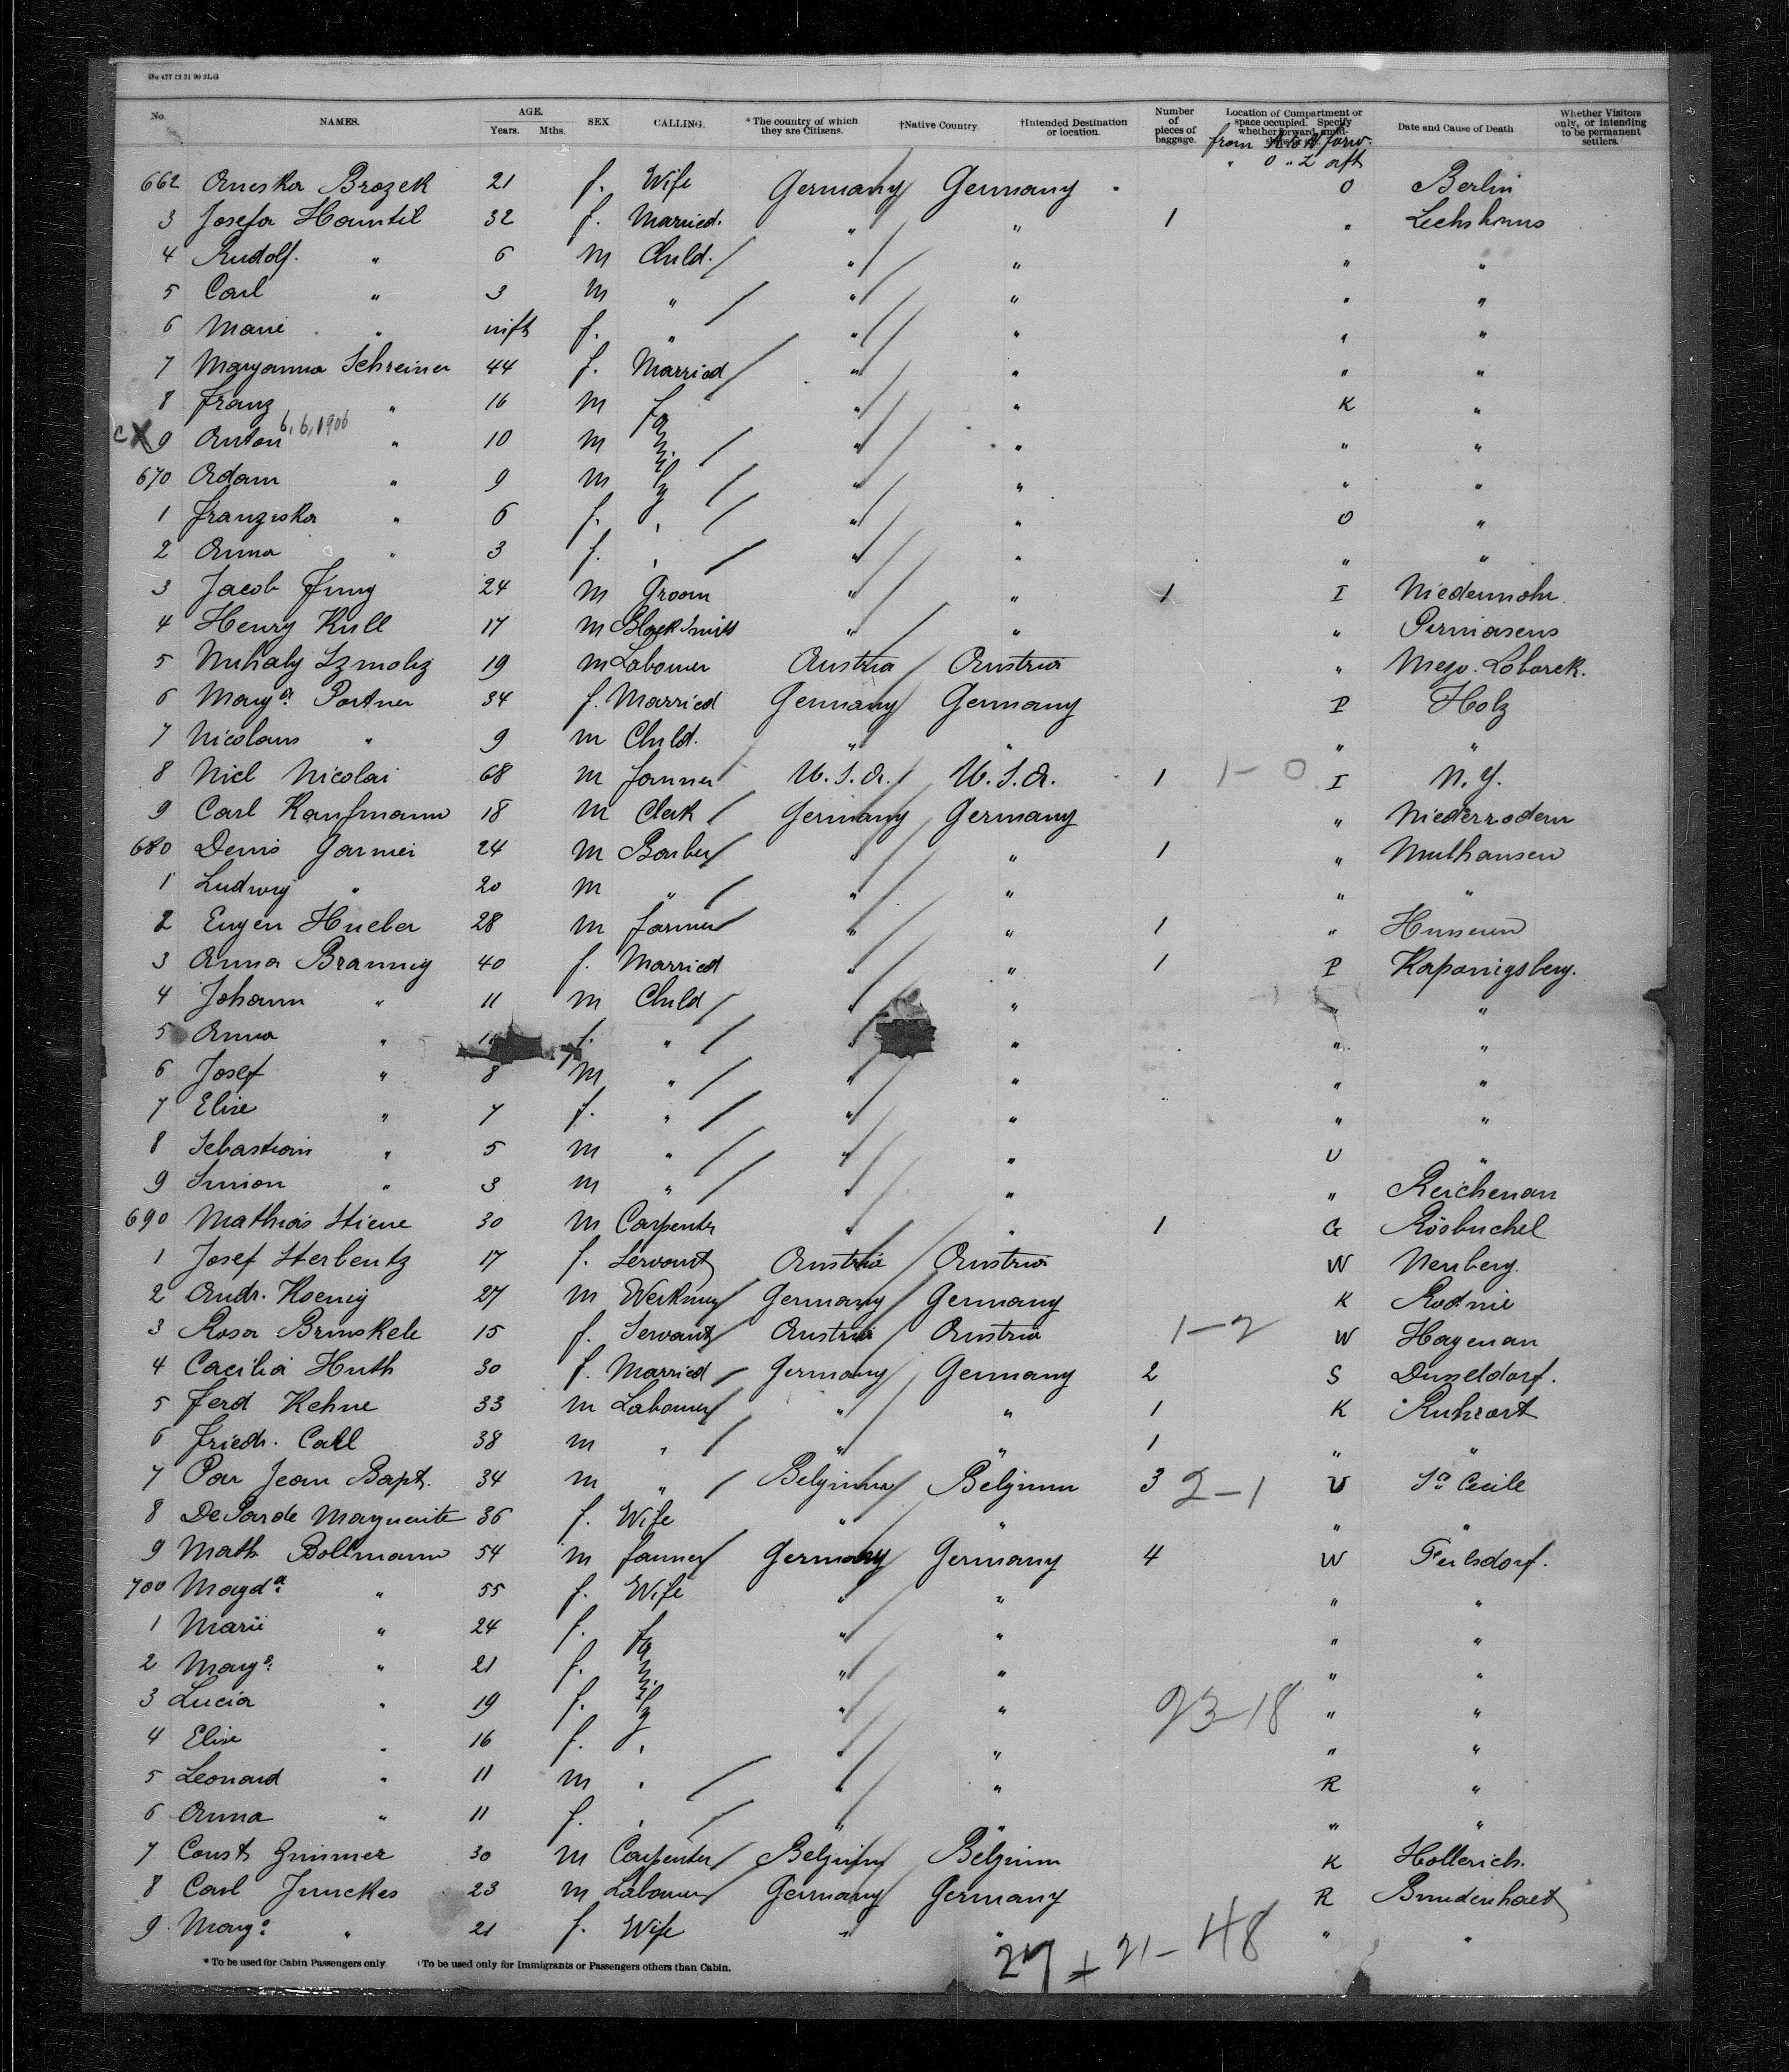 No. NAMES. AGE. Years. Mths. SEX. CALLING. * The country of which they are Citizens. †Native Country. †Intended Destination or location. Number of pieces of baggage. Location of Compartment or space occupied. Specify whether forward, Date and Cause of Death. Whether Visitors only, or intending to be permanent settlers.
from A to N forw.
" O " Z aft
662 Aneska Brozek 21 f. Wife Germany Germany O Berlin
3 Josefa Hamtil 32 f. Married. " " 1 "
4 Rudolf. " 6 m Child. " " " "
5 Carl " 3 m " " " " "
6 Marie " inft f. " " " " "
7 Maryanna Schreiner 44 f. Married " " " "
8 Franz " 16 m " " K "
6,6,1906
cX 9 Anton " 10 m " " " "
670 Adam " 9 m " " " "
1 Franziska " 6 f. " " O "
2 Anna " 3 f. " " " "
3 Jacob Jung 24 m Groom " " 1 I Niedermohr
4 Henry Kull 17 m BlackSmith " " " Pirmasens
5 Mihaly 19 m Labourer Austria Austria " Mezo. Laborek.
6 Marg a. Portner 34 f. Married Germany Germany P Holz
7 Nicolaus " 9 m Child. " " " "
8 Nicl Nicolai 68 m Farmer U.S.A. U.S.A. 1 1-0 I N.Y.
9 Carl Kaufmann 18 m Clerk Germany Germany " Niederrodern
680 Denis 24 m Barber " " 1 " Mulhausen
1 Ludwig " 20 m " " " " "
2 Eugen Hueber 28 m Farmer " " 1 "
3 Anna Brannig 40 f. Married " " 1 P
4 Johann " 11 m Child " " " "
5 Anna " f. " " " " "
6 Josef " 8 m " " " " "
7 Elise " 7 f. " " " " "
8 Sebastian " 5 m " " " U "
9 Simon " 3 m " " " " Reichenau
690 Mathias Stieve 30 m Carpenter " " 1 G
1 Josef Sterbentz 17 f. Servant Austria Austria W Neuberg.
2 Andr. Koenig 27 m Germany Germany K
3 Rosa 15 f. Servant Austria Austria 1-2 W Hagenau
4 Cacilia Huth 30 f. Married Germany Germany 2 S Dusseldorf.
5 Ferd Kehne 33 m Labourer " " 1 K Ruhrort
6 Friedr. Call 38 m " " " 1 " "
7 Par Jean Bapt. 34 m " Belgium Belgium 3 2-1 U Sa Cecile
8 Marguerite 36 f. Wife " " " "
9 Math Bollmann 54 m Farmer Germany Germany 4 W
700 Magda " 55 f. Wife " " " "
1 Marie " 24 f. " " " "
2 Marga. " 21 f. " " " "
3 Lucia " 19 f. " " 23-18 " "
4 Elise " 16 f. " " " "
5 Leonard " 11 m " " R "
6 Anna " 11 f. " " " "
7 Const Gimmer 30 m Carpenter Belgium Belgium K Hollerich.
8 Carl Junckes 23 m Labourer Germany Germany R
9 Marga. " 21 f. Wife " " " "
27 + 21 - 48
* To be used for Cabin Passengers only. †To be used only for Immigrants or Passengers others than Cabin.